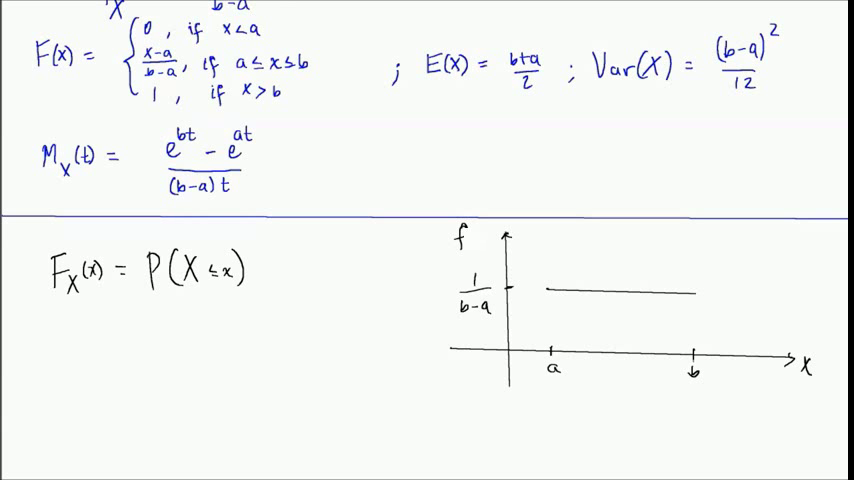 X b-a
F(x) = { 0 , if x<a
x-a/b-a , if a≤x≤b
1 , if x>b
; E(x) = b+a/2 ; Var(X) = (b-a)²/12
M_X(t) = e^bt - e^at / (b-a)t
F_X(x) = P(X ≤ x)
f
1/b-a
a b x